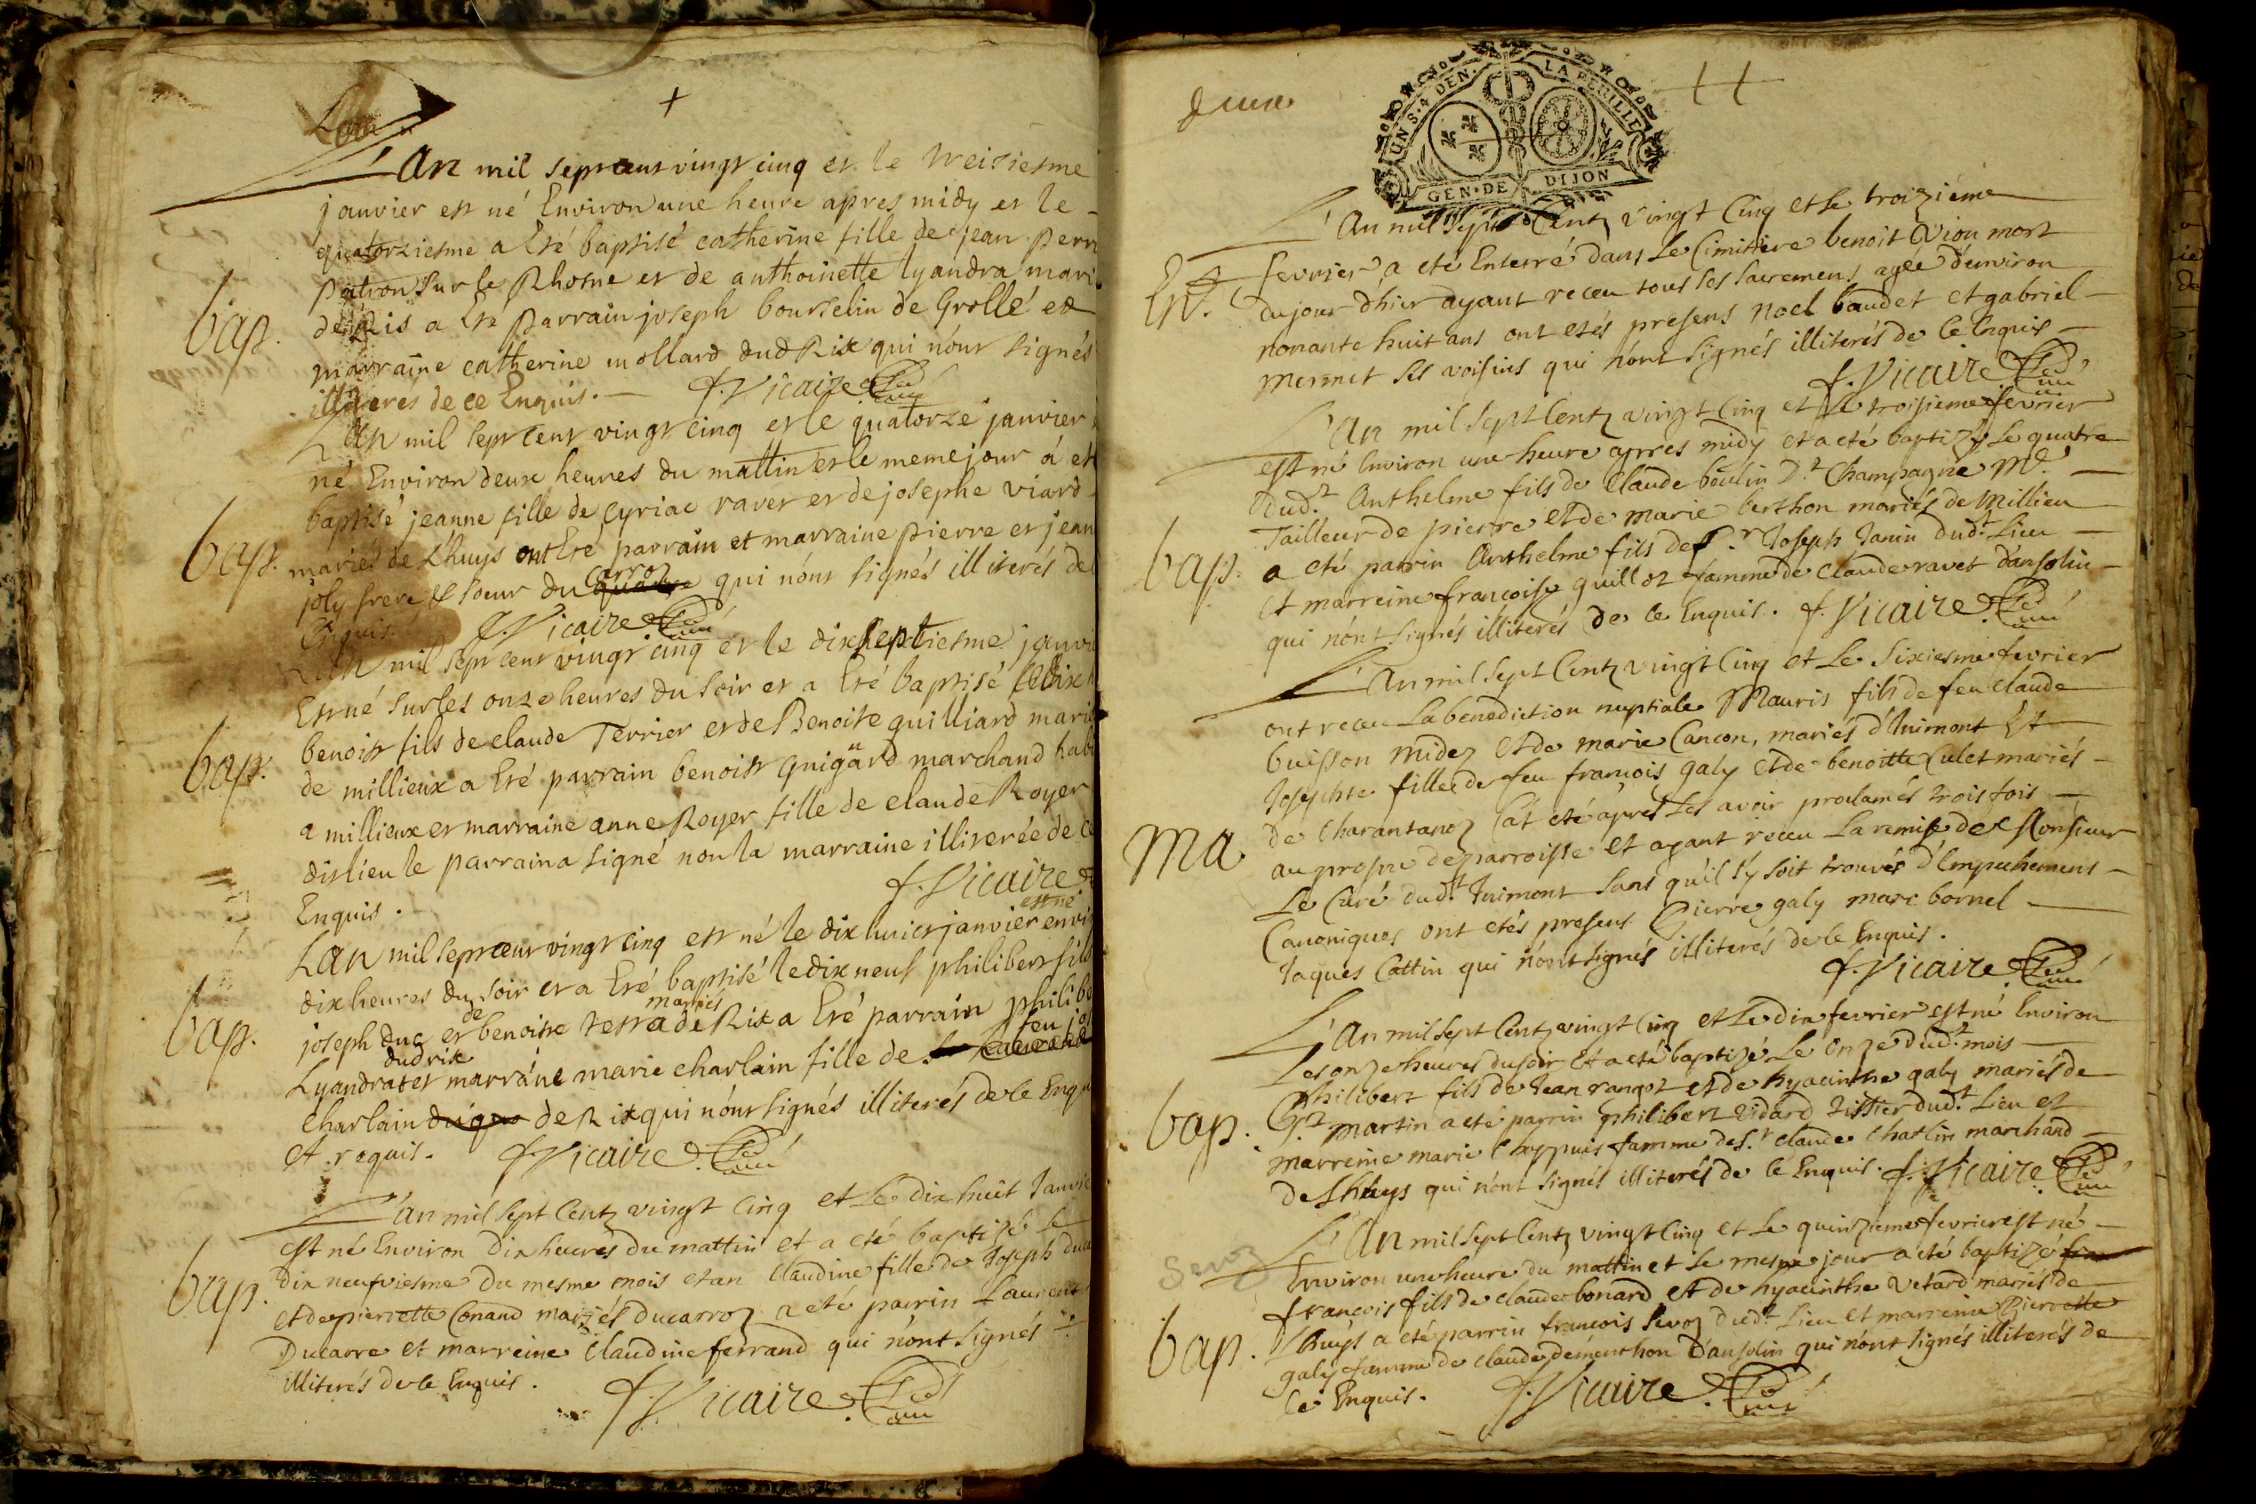 +
L'an mil sept cent vingt cinq et le treiziesme
janvier est né Environ une heure apres midy et le
quatorziesme a Eté baptisé catherine fille de jean perr
patron sur le Rhosne et de anthoinette lyandra mari
bap.
de Ris a Eté parrain joseph bourselin de Grollé et
marraine catherine mollard dud Rix qui nónt signés
illiterés de ce Enquis. f. Vicaire Curé
L'an mil sept cent vingt cinq et le quatorze janvier
né Environ deux heures du mattin et le meme jour á eté
baptisé jeanne fille de Cyriac raver et de josephe viard
bap.
mariés de Lhuys ont Eté parrain et marraine pierre et jean
joly frere et soeur du carroz qui nónt signés illiterés de
Enquis. f. Vicaire Curé
L'an mil sept cent vingt cinq et le dix septiesme janvi
Est né sur les onze heures du soir et a Eté baptisé le dix h
benoist fils de claude Terrier et de Benoite guilliard marié
bap.
de millieux a Eté parrain benoist guigard marchand habi
a millieux et marraine anne Royer fille de claude Royer
dit lieu le parrain a signé non la marraine illiterée de ce
Enquis. f. Vicaire
est né
L'an mil sept cent vingt cinq est né le dix huict janvier envi
dix heures du soir et a Eté baptisé le dix neuf philibert fils
de mariés
bap.
joseph duc et benoitte terra de Rix a Eté parrain philibe
dud rix feu jo
Lyandrat et marráne marie charlain fille de
charlain de Rix qui nónt signés illiterés de le Enqu
et requis. f. Vicaire Curé
L'an mil sept Centz vingt Cinq et Le dix huit Janvie
est né Environ dix heures du mattin et a eté baptizé le
dix neufviesme du mesme mois et an Claudine fille de Joseph duca
bap.
et de pierrette Conand mariés ducarroz a eté parrin Laurent
Ducarre et marreine Claudine ferrand qui nónt signés
illiterés de le Enquis. f. Vicaire Curé
deux
UN S. 4 DEN. LA FEUILLE
GEN. DE DIJON
L'an mil sept Centz vingt Cinq et le troizième
fevrier a eté Enterré dans Le Cimitiere benoit Vion mort
Ent.
du jour d'hier ayant receu tous ses sacremens agée d'environ
nonante huit ans ont etés presens noel baudet et gabriel
mermet ses voisins qui nónt signés illiterés de ce Enquis
f. Vicaire Curé
L'an mil sept Centz vingt Cinq et le troisieme fevrier
est né Environ une heure apres midy et a eté baptizé le quatre
dud.t Anthelme fils de Claude boulin d.t Champagne M.e
Tailleur de pierre et de marie berthon mariés de Millieu
bap.
a eté parrin Anthelme fils de S.r Joseph Janin dud.t Lieu
et marreine francoise guilloz famme de Claude ravet d'ansolin
qui nónt signés illiterés de ce Enquis. f. Vicaire Curé
L'an mil sept Centz vingt Cinq et Le Sixiesme fevrier
ont receu La benediction nuptiale Mauris fils de feu claude
buisson midez et de marie Cancon, mariés d'Inimont Et
Josephte fille de feu francois galy et de benoitte Culet mariés
de Charantanoz Cát eté aprés Les avoir proclamés trois fois
ma
au prosne de parroisse et ayant receu La remise de Monsieur
Le Curé dud.t Inimont sans qu'il s'y soit trouvés d'Empechemens
Canoniques ont etés presens Pierre galy marc bornel
Jaques Cattin qui nónt signés illiterés de le Enquis.
f. Vicaire Curé
L'an mil sept Centz vingt Cinq et Le dix fevrier est né Environ
Les onze heures du soir et a eté baptizé Le onze dud.t mois
Philibert fils de Jean rangot et de hyacinthe galy mariés de
bap.
S.t martin a eté parrin philibert vidard tissier dud.t Lieu et
marreine marie Chappuis famme de S.r claude Chatlin marchand
de Lhuys qui nónt signés illiterés de cé Enquis. f. Vicaire Curé
L'an mil sept Centz vingt Cinq et Le quinzieme fevrier est né
Environ une heure du mattin et le mesme jour a eté baptizé
Sevoz
francois fils de claude bonard et de hyacinthe vetard mariés de
bap.
Lhuys a eté parrin francois Sevoz dud.t Lieu et marreine Pierrette
galy famme de claude dementhon d'ansolin qui nónt signés illiterés de
cé Enquis. f. Vicaire Curé